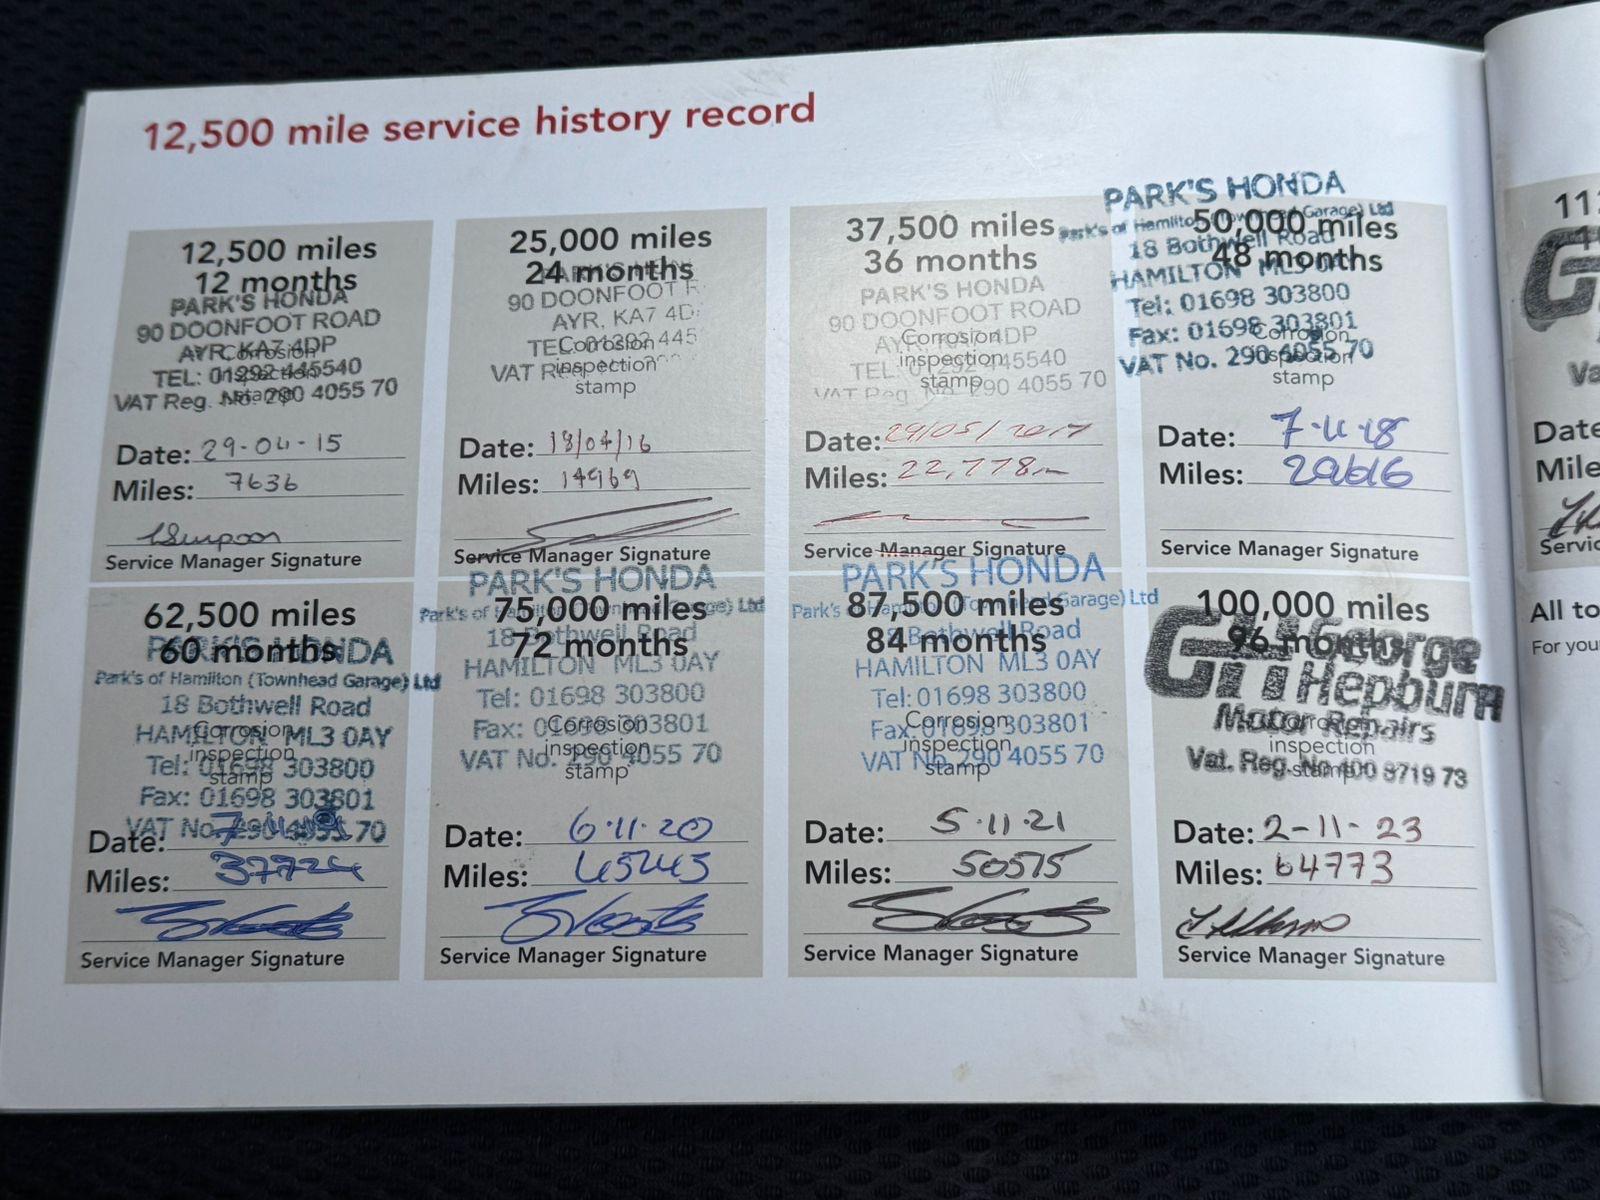 12,500 mile service history record
12,500 miles
12 months
PARK'S HONDA
90 DOONFOOT ROAD
AYR, KA7 4DP
Corrosion
inspection
stamp
TEL: 01292 445540
VAT Reg. No. 290 4055 70
Date: 29-04-15
Miles: 7636
Service Manager Signature
25,000 miles
24 months
90 DOONFOOT
AYR, KA7 4D
Corrosion
inspection
stamp
Date: 18/04/16
Miles: 14969
Service Manager Signature
37,500 miles
36 months
PARK'S HONDA
90 DOONFOOT ROAD
Corrosion
inspection
stamp
VAT Reg. No. 290 4055 70
Date: 29/05/2017
Miles: 22,778
Service Manager Signature
PARK'S HONDA
Park's of Hamilton (Townhead Garage) Ltd
50,000 miles
48 months
18 Bothwell Road
HAMILTON ML3 0AY
Tel: 01698 303800
Fax: 01698 303801
VAT No. 290 4055 70
Corrosion
inspection
stamp
Date: 7.11.18
Miles: 29616
Service Manager Signature
62,500 miles
60 months
PARK'S HONDA
Park's of Hamilton (Townhead Garage) Ltd
18 Bothwell Road
HAMILTON ML3 0AY
Corrosion
inspection
stamp
Tel: 01698 303800
Fax: 01698 303801
VAT No. 290 4055 70
Date:
Miles: 37724
Service Manager Signature
PARK'S HONDA
Park's of Hamilton (Townhead Garage) Ltd
75,000 miles
72 months
18 Bothwell Road
HAMILTON ML3 0AY
Tel: 01698 303800
Fax: 01698 303801
VAT No. 290 4055 70
Corrosion
inspection
stamp
Date: 6.11.20
Miles: 45245
Service Manager Signature
PARK'S HONDA
Park's of Hamilton (Townhead Garage) Ltd
87,500 miles
84 months
18 Bothwell Road
HAMILTON ML3 0AY
Tel: 01698 303800
Fax: 01698 303801
VAT No. 290 4055 70
Corrosion
inspection
stamp
Date: 5.11.21
Miles: 50575
Service Manager Signature
100,000 miles
96 months
GH George
Hepburn
Motor Repairs
Corrosion
inspection
stamp
Vat. Reg. No 400 8719 73
Date: 2-11-23
Miles: 64773
Service Manager Signature
All to
For you